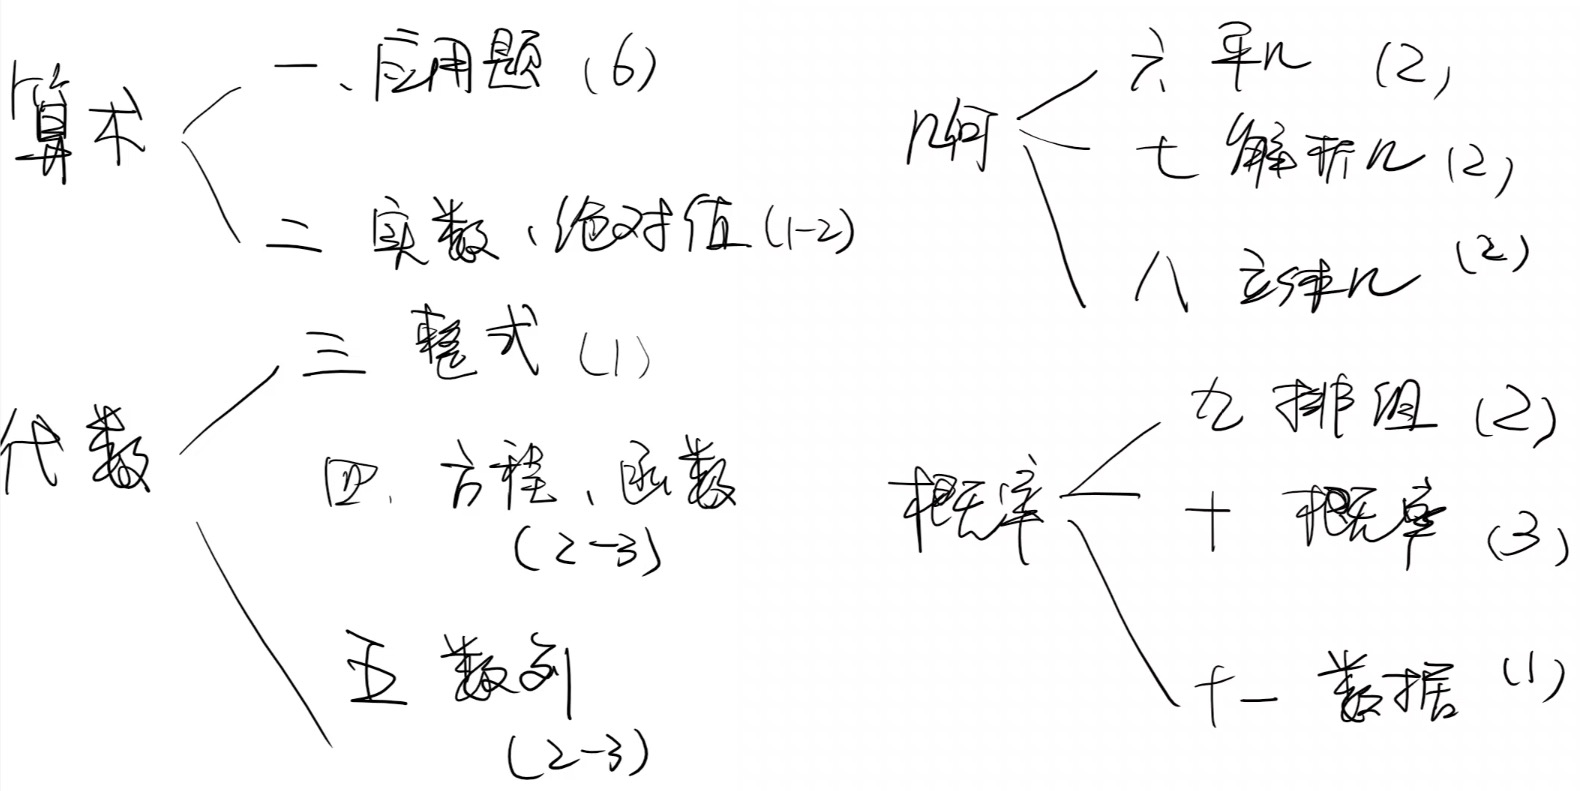 算术
一、应用题 (6)
二 实数、绝对值 (1-2)
代数
三 整式 (1)
四、方程、函数
(2-3)
五 数列
(2-3)
几何
六 平几 (2)
七 解析几 (2)
八 立体几 (2)
概率
九 排组 (2)
十 概率 (3)
十一 数据 (1)